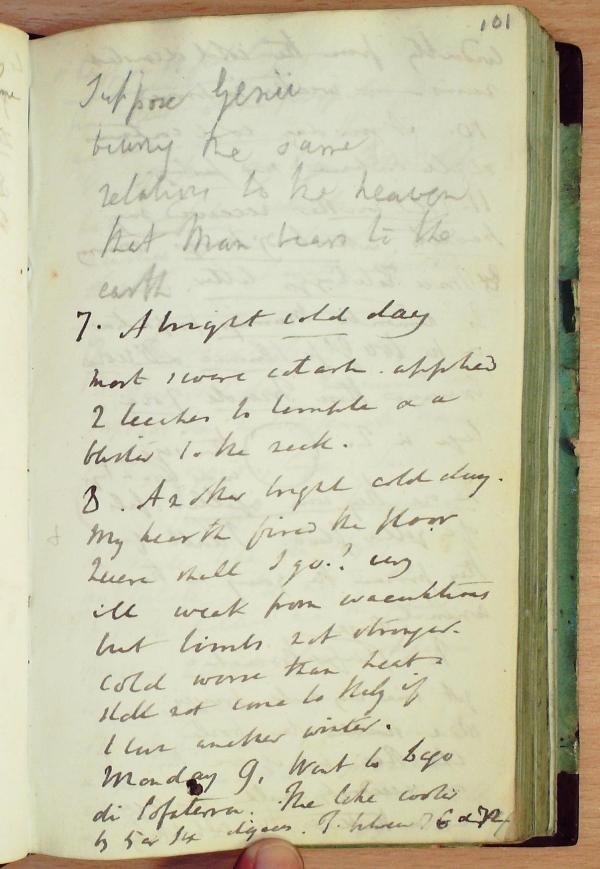 101
Suppose Genii
bearing the same
relations to the heaven
that Man bears to the
earth
7. A bright cold day
most severe attack. applied
2 leeches to temple & a
blister to the neck.
8. Another bright cold day.
My hearth fired the floor
where shall I go.? very
ill weak from evacuations
but limbs not stronger.
cold worse than heat
shall not come to Italy if
I live another winter.
Monday 9, Went to Lago
di The lake cooler
by 5 or six degrees. T. between 76 &